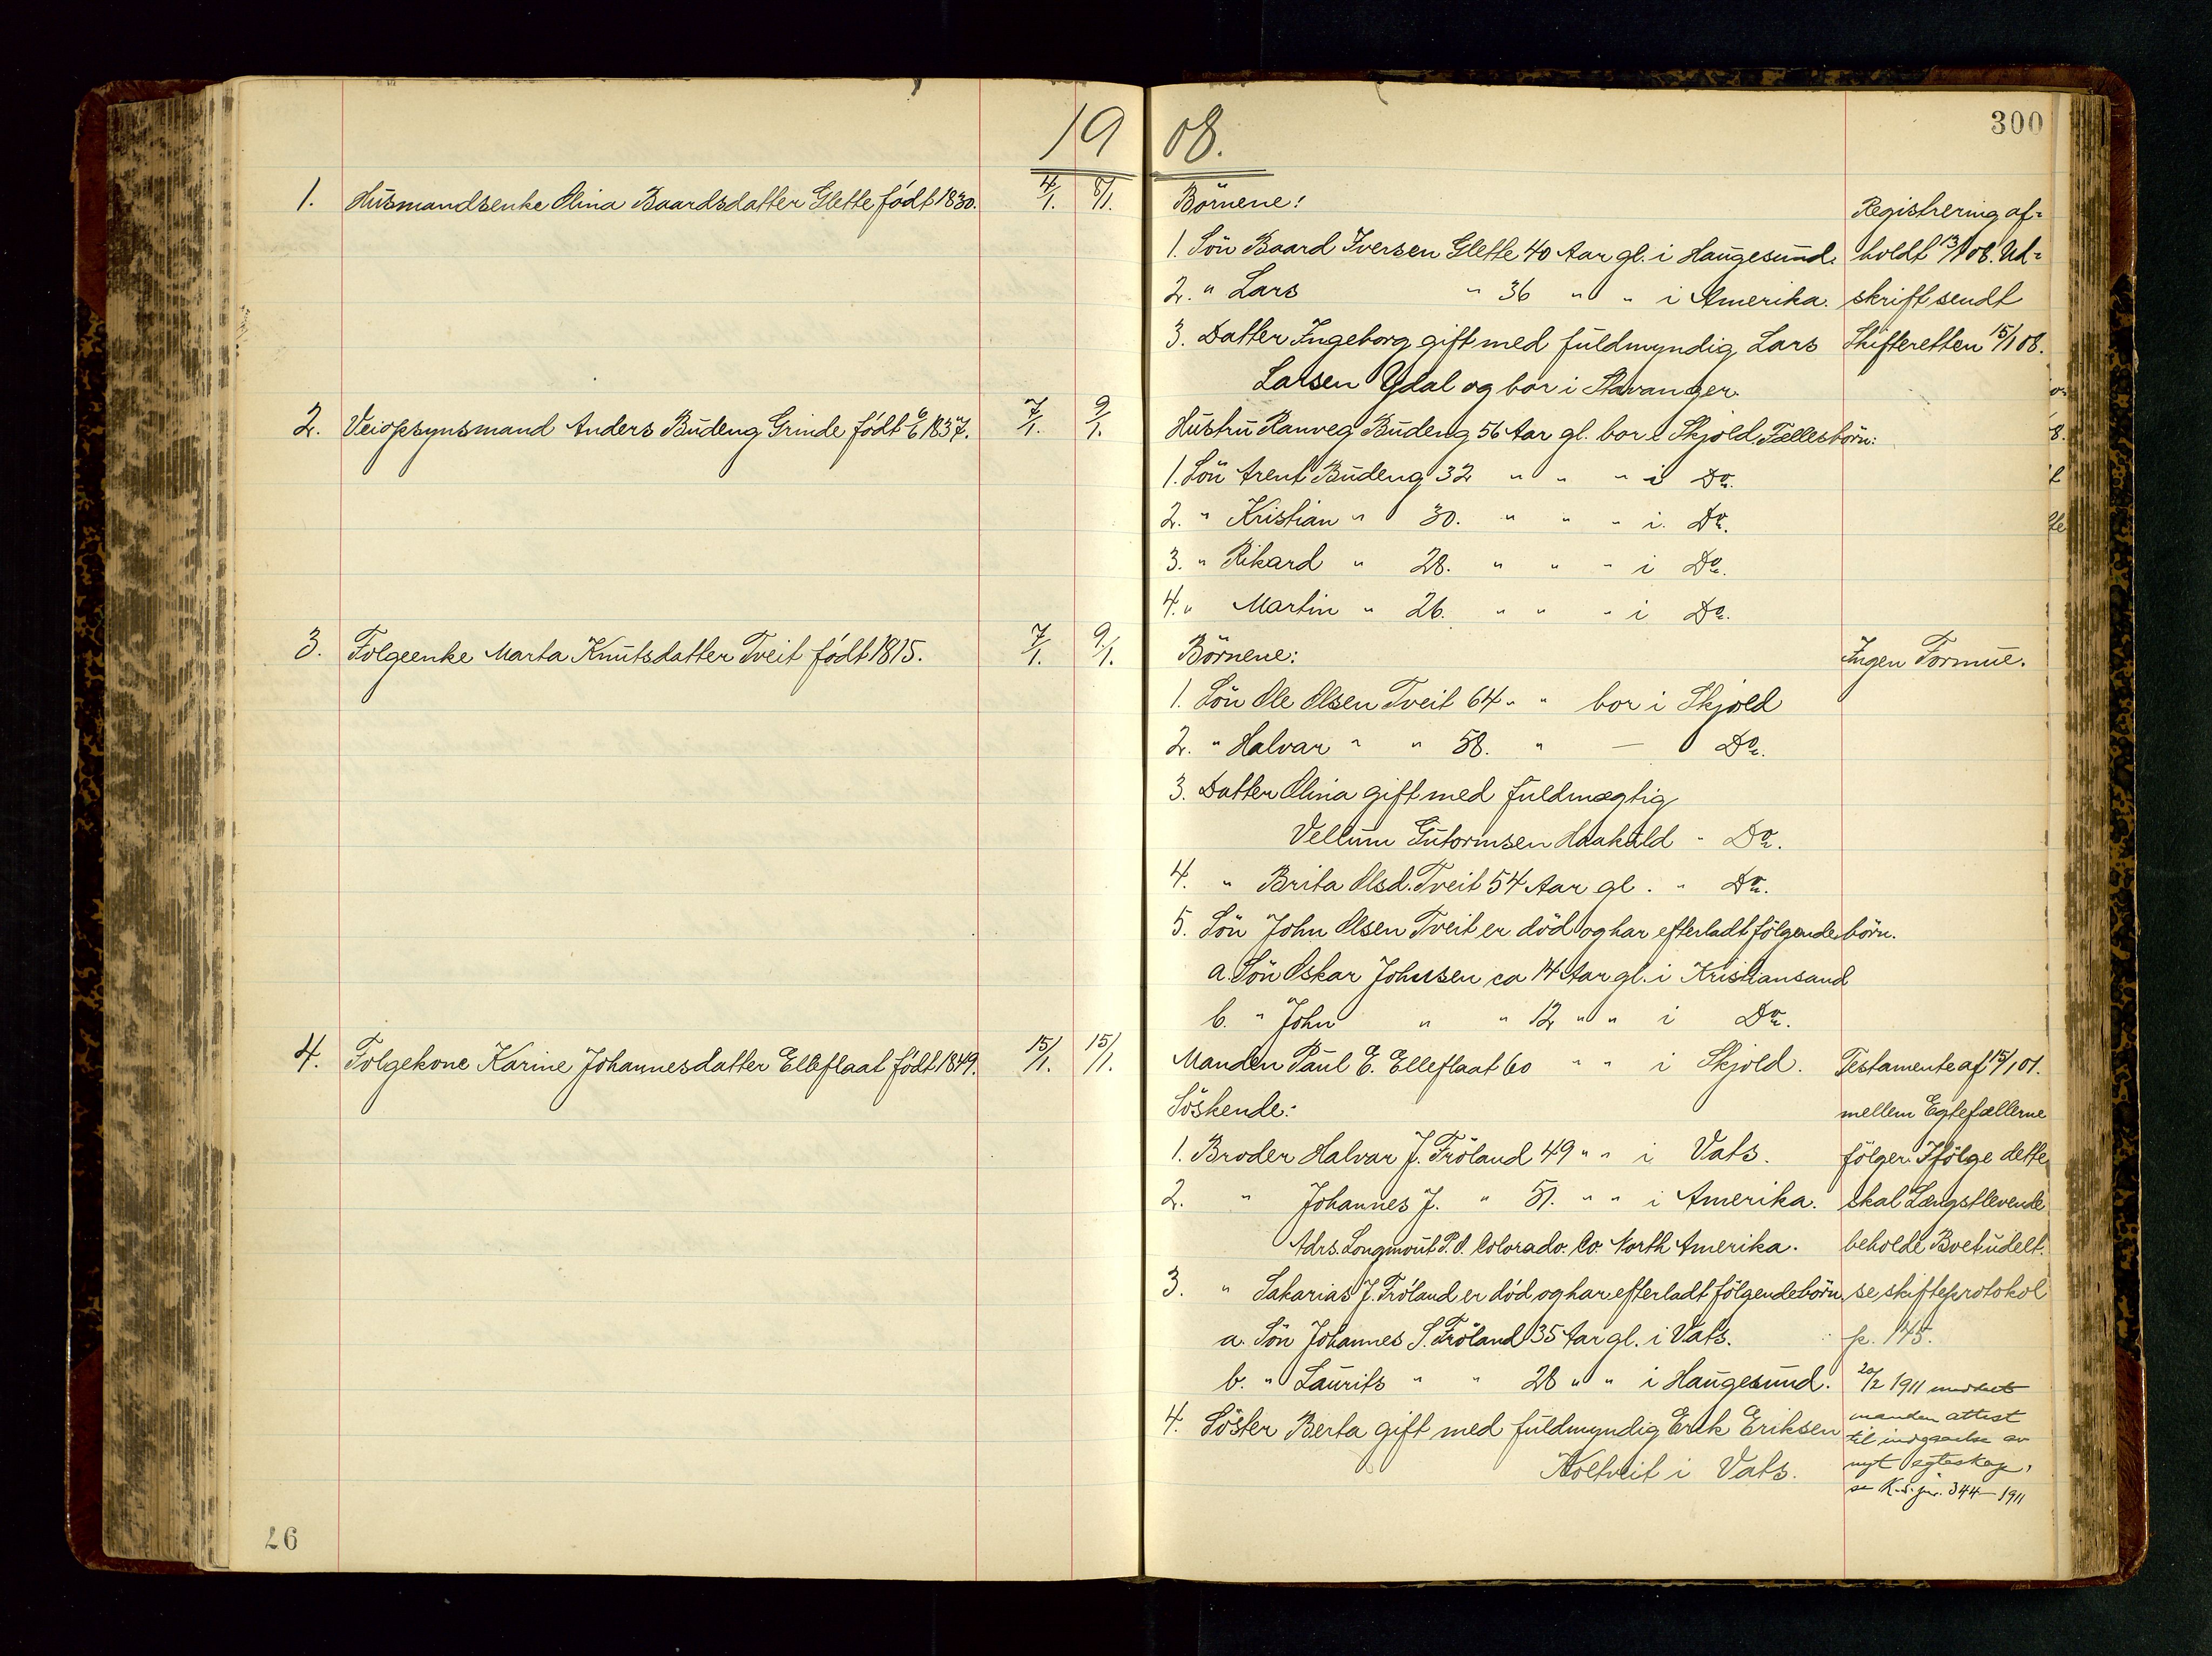 1908.
300
1. Husmandsenke Olina Baardsdatter Glette født 1830. 4/1. 8/1.
Börnene:
1. Sön Baard Iversen Glette 40 Aar gl. i Haugesund.
2. " Lars " 36 " " i Amerika.
3. Datter Ingeborg gift med fuldmyndig Lars
Larsen Ydal og bor i Stavanger.
Registrering af=
holdt 13/1 08. Ud=
skrift sendt
Skifteretten 15/1 08.
2. Veiopsynsmand Anders Budeng Grinde født 1837. 7/1. 9/1.
Hustru Ranveg Budeng 56 Aar gl. bor i Skjold. Fællesbörn:
1. Sön Arent Budeng 32 " " " i Do.
2. " Kristian " 30. " " " i. Do.
3. " Rikard " 28. " " " i Do.
4. " Martin " 26. " " " i Do.
3. Folgeenke Marta Knutsdatter Tveit født 1815. 7/1. 9/1.
Börnene:
1. Sön Ole Olsen Tveit 64 " " bor i Skjold
2. " Halvar " " 58. " — Do.
3. Datter Olina gift med fuldmægtig
Vellum Gutormsen Haakuld " Do.
4. " Brita Olsd. Tveit 54 Aar gl. " Do.
5. Sön John Olsen Tveit er död og har efterladt fölgende börn.
a. Sön Oskar Johnsen ca 14 Aar gl. i Kristiansand
b. " John " " 12 " " i Do.
Ingen Formue.
4. Folgekone Karine Johannesdatter Elleflaat født 1849. 15/1. 15/1.
Manden Paul E. Elleflaat 60 " " i Skjold.
Söskende:
1. Broder Halvar J. Fröland 49 " " i Vats.
2. " Johannes J. " 51. " " i Amerika.
Adrs. Longmout P.O. Colorado. Co. North Amerika.
3. " Sakarias J. Fröland er död og har efterladt fölgende börn.
a. Sön Johannes S. Fröland 35 Aar gl. i Vats.
b. " Laurits " " 28 " " i Haugesund.
4. Söster Berta gift med fuldmyndig Erik Eriksen
Koltveit i Vats.
Testamente af 15/1 01.
mellem Egtefællerne
fölger. Ifölge dette
skal Længstlevende
beholde Boet udelt.
se skifteprotokol
p. 145.
20/2 1911
manden attest
til indgaaelse av
nyt egteskap,
se K.S. jur. 344-1911
26